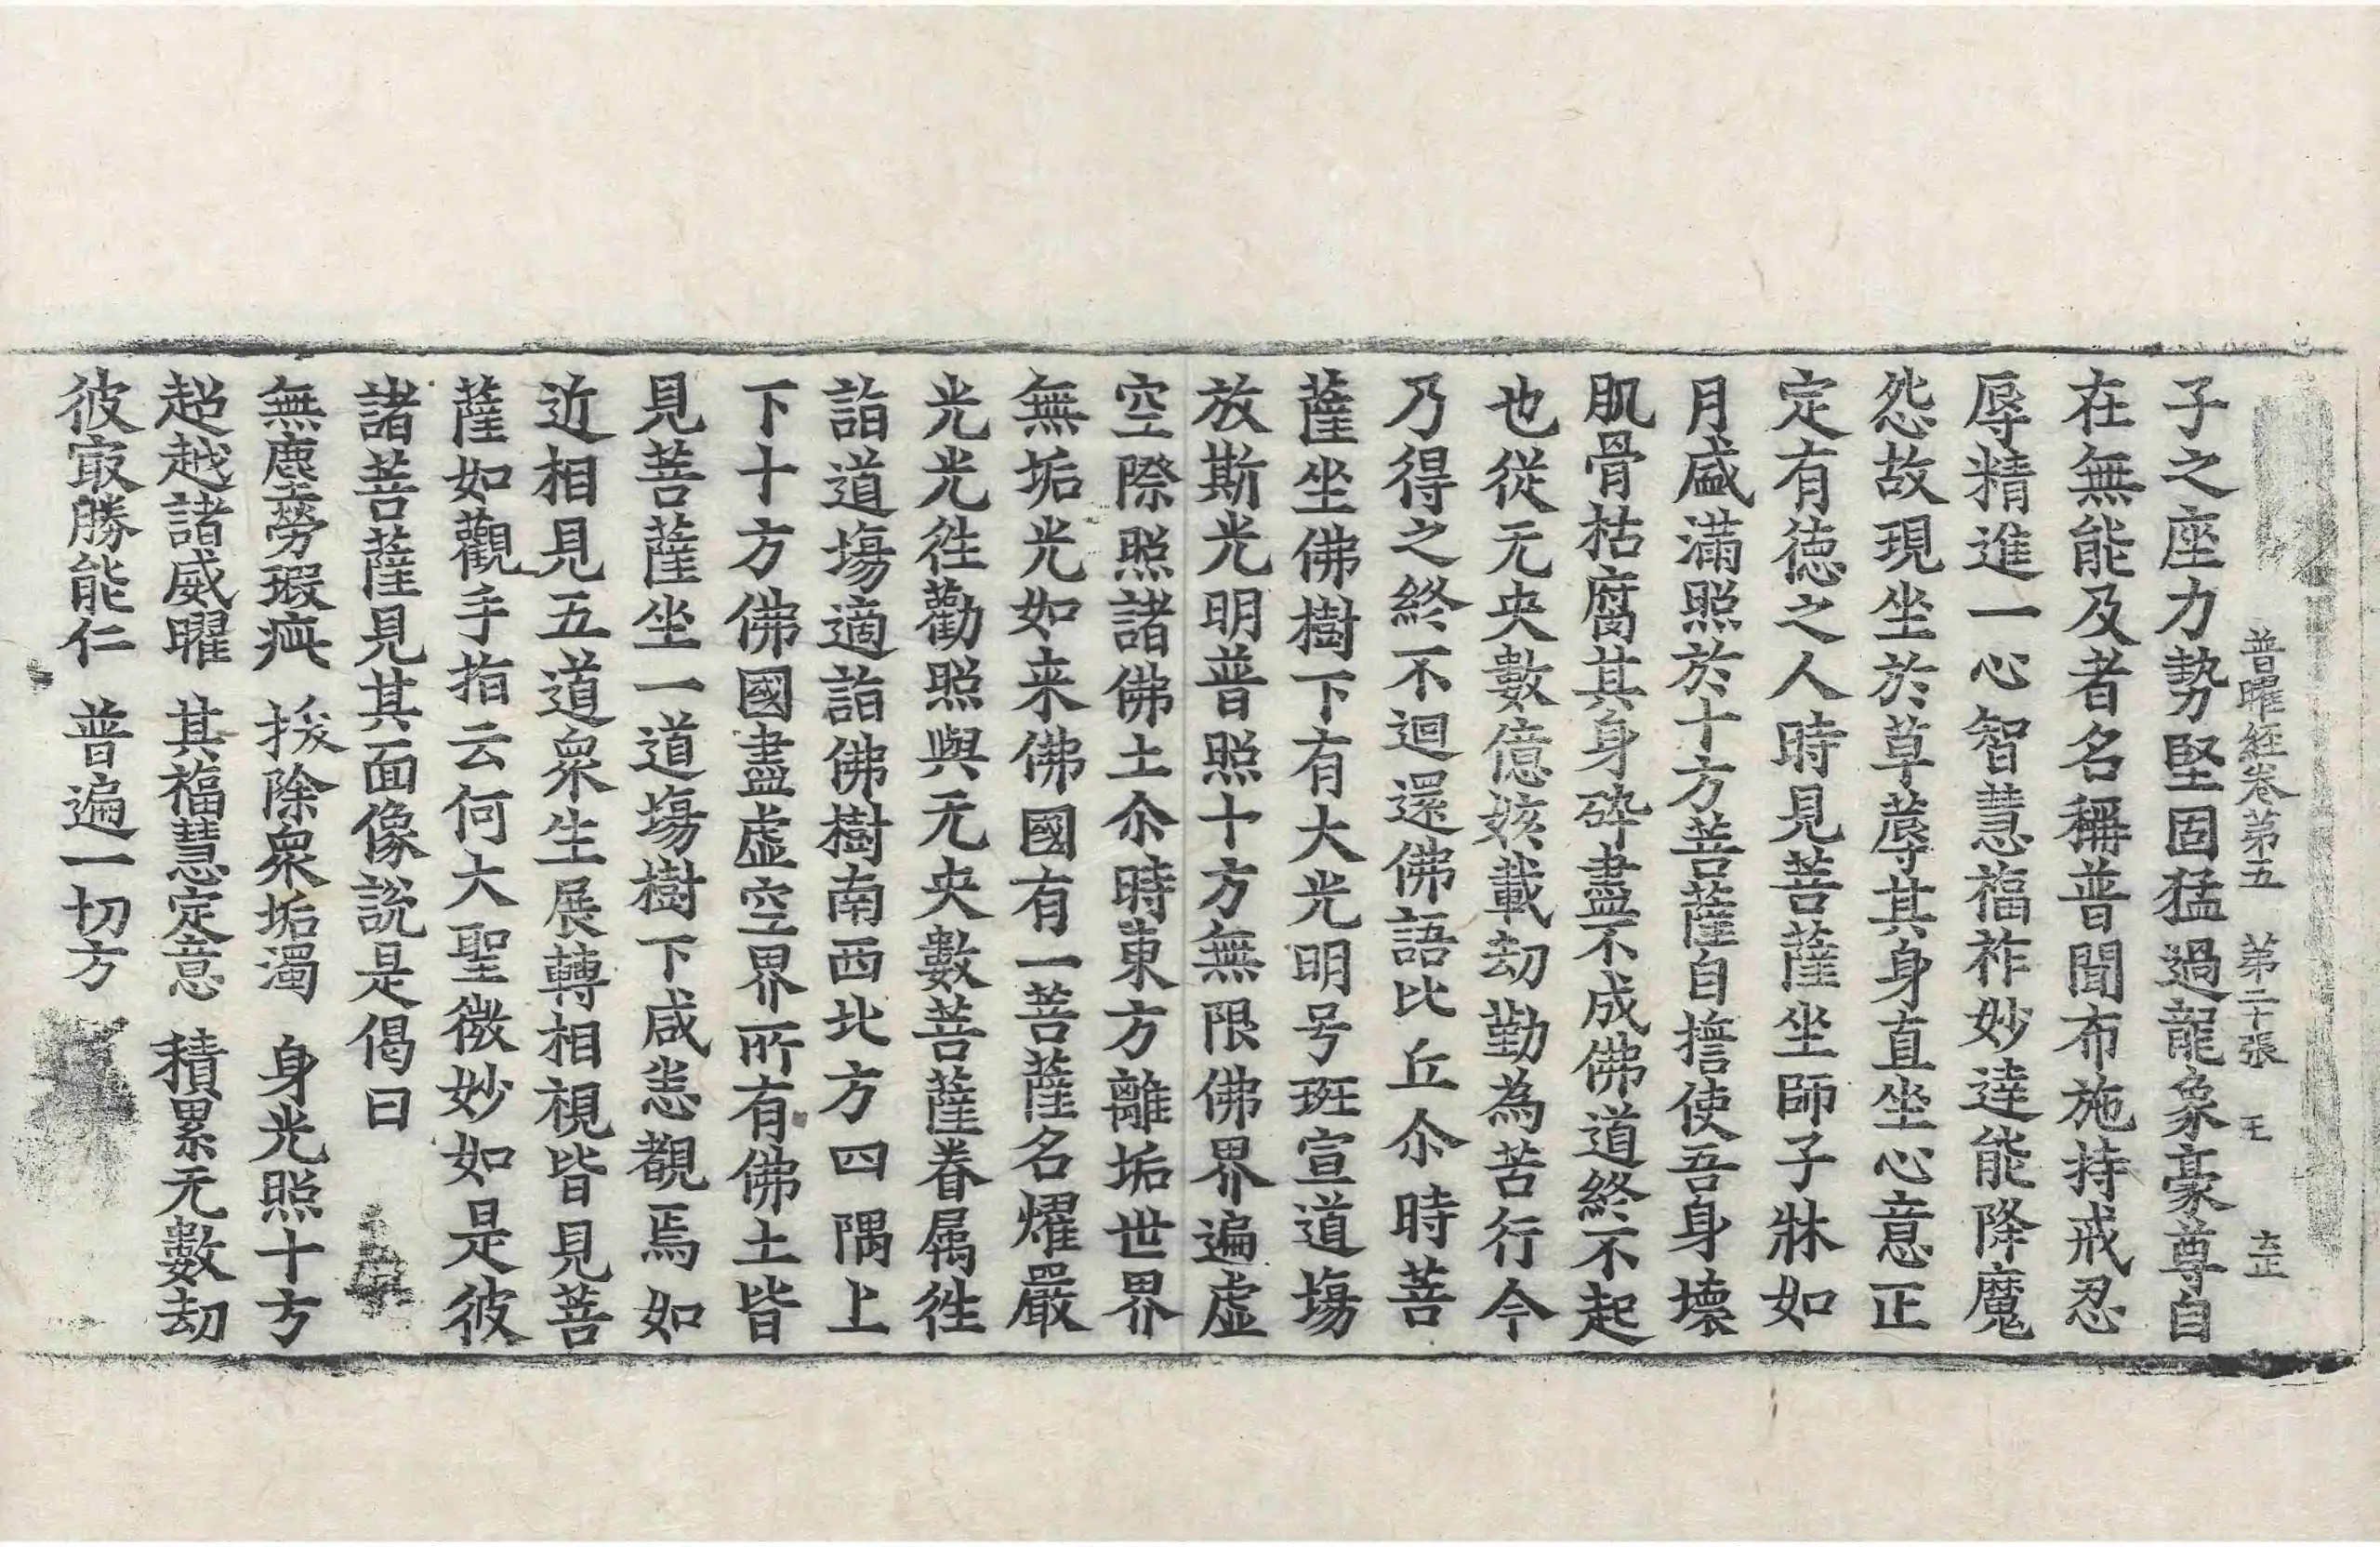 普曜経卷第五 第二十張 王
子之座力勢堅固猛過龍象豪尊自
在無能及者名稱普聞布施持戒忍
辱精進一心智慧福祚妙達能降魔
怨故現坐於草蓐其身直坐心意正
定有德之人時見菩薩坐師子牀如
月盛滿照於十方菩薩自擔使吾身壞
肌骨枯腐其身碎盡不成佛道終不起
也從无央數億姟載劫勤為苦行今
乃得之終不迴還佛語比丘尒時菩
薩坐佛樹下有大光明号班宣道塲
放斯光明普照十方無限佛界遍虛
空際照諸佛土尒時東方離垢世界
無垢光如来佛國有一菩薩名燿嚴
光光徃勸照與无央數菩薩眷屬徃
詣道塲適詣佛樹南西北方四隅上
下十方佛國盡虛空界所有佛土皆
見菩薩坐一道塲樹下咸恙覩焉如
近相見五道衆生展轉相視皆見菩
薩如觀手指云何大聖微妙如是彼
諸菩薩見其面像說是偈曰
無塵勞瑕疵 拔除衆垢濁 身光照十方
超越諸威曜 其福慧定意 積累无數劫
彼㝡勝能仁 普遍一切方